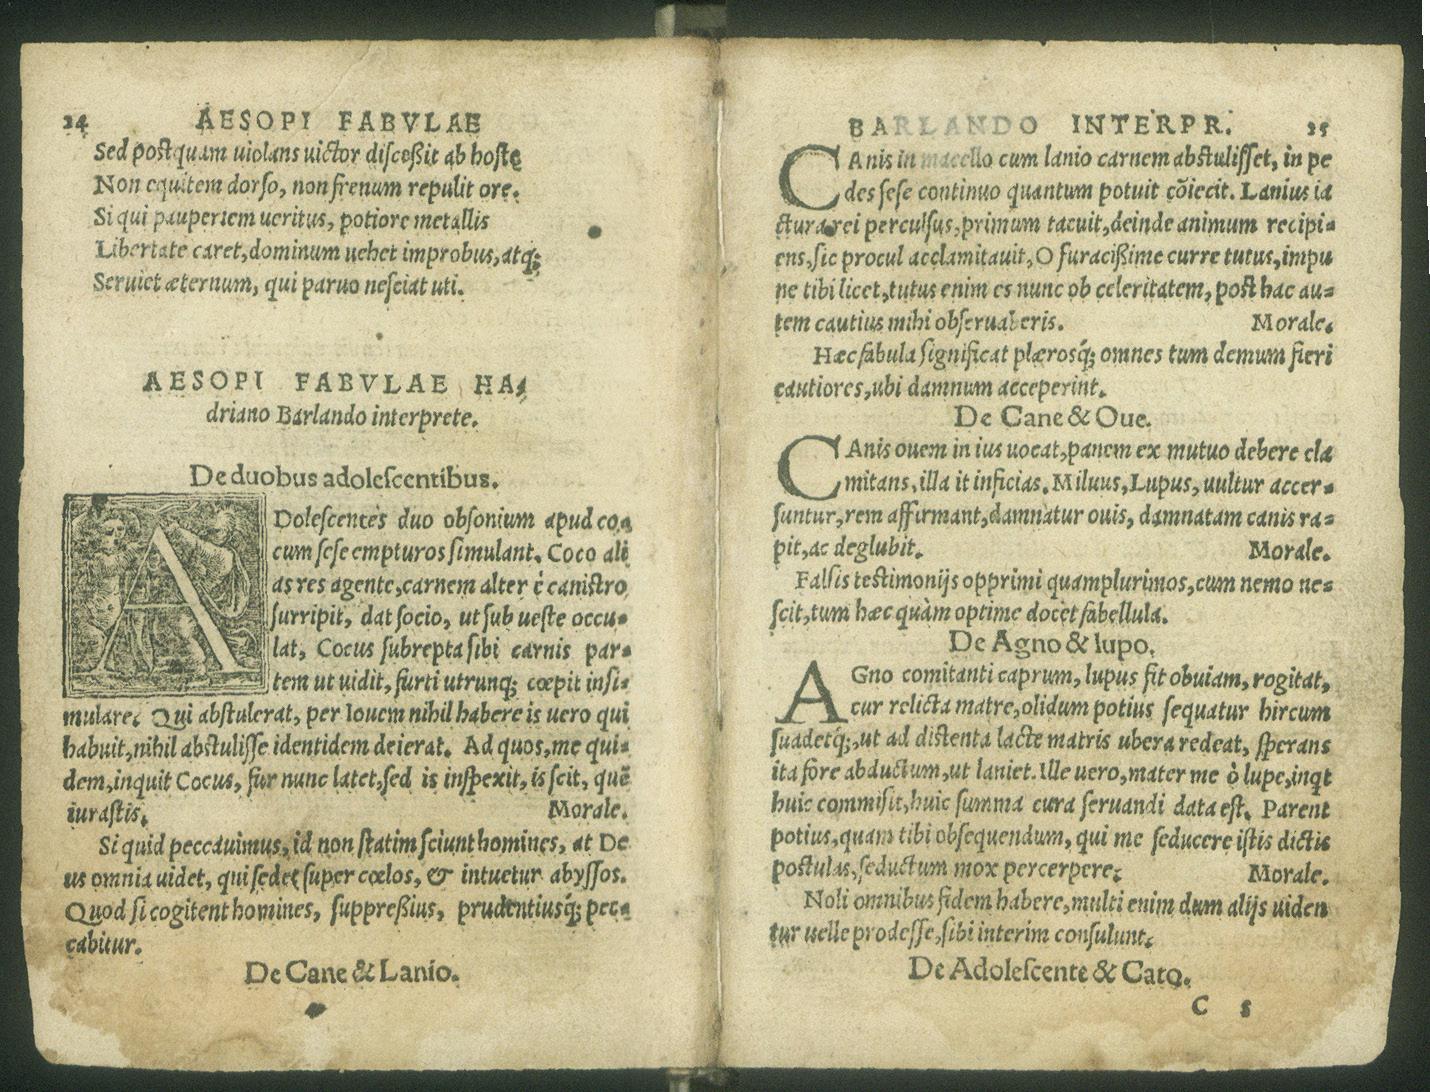 24 AESOPI FABVLAE
Sed postquam uiolans uictor discessit ab hoste
Non equitem dorso, non frenum repulit ore.
Si qui pauperiem ueritus, potiore metallis
Libertate caret, dominum uehet improbus, atq;
Seruiet æternum, qui paruo nesciat uti.
AESOPI FABVLAE HA-
driano Barlando interprete.
De duobus adolescentibus.
ADolescentes duo obsonium apud co-
cum sese empturos simulant. Coco ali
as res agente, carnem alter è canistro
surripit, dat socio, ut sub ueste occu-
lat, Cocus subrepta sibi carnis par-
tem ut uidit, furti utrunq; cœpit insi-
mulare. Qui abstulerat, per Iouem nihil habere is uero qui
habuit, nihil abstulisse identidem deierat. Ad quos, me qui-
dem, inquit Cocus, fur nunc latet, sed is inspexit, is scit, quē
iurastis. Morale.
Si quid peccauimus, id non statim sciunt homines, at De
us omnia uidet, qui sedet super cœlos, & intuetur abyssos.
Quod si cogitent homines, suppressius, prudentiusq́; pec-
cabitur.
De Cane & Lanio.
BARLANDO INTERPR. 25
CAnis in macello cum lanio carnem abstulisset, in pe
des sese continuo quantum potuit cōiecit. Lanius ia
ctura rei perculsus, primum tacuit, deinde animum recipi-
ens, sic procul acclamitauit, O furacissime curre tutus, impu
ne tibi licet, tutus enim es nunc ob celeritatem, post hac au-
tem cautius mihi obseruaberis. Morale.
Hæc fabula significat plærosq́; omnes tum demum fieri
cautiores, ubi damnum acceperint.
De Cane & Oue.
CAnis ouem in ius uocat, panem ex mutuo debere cla
mitans, illa it inficias. Miluus, Lupus, uultur accer-
suntur, rem affirmant, damnatur ouis, damnatam canis ra-
pit, ac deglubit. Morale.
Falsis testimonijs opprimi quamplurimos, cum nemo ne-
scit, tum hæc quàm optime docet fabellula.
De Agno & lupo.
AGno comitanti caprum, lupus fit obuiam, rogitat,
cur relicta matre, olidum potius sequatur hircum
suadetq́;, ut ad distenta lacte matris ubera redeat, sperans
ita fore abductum, ut laniet. Ille uero, mater me ò lupe, inqt
huic commisit, huic summa cura seruandi data est. Parent
potius, quam tibi obsequendum, qui me seducere istis dictis
postulas, seductum mox percerpere. Morale.
Noli omnibus fidem habere, multi enim dum alijs uiden
tur uelle prodesse, sibi interim consulunt.
De Adolescente & Cato.
C 5